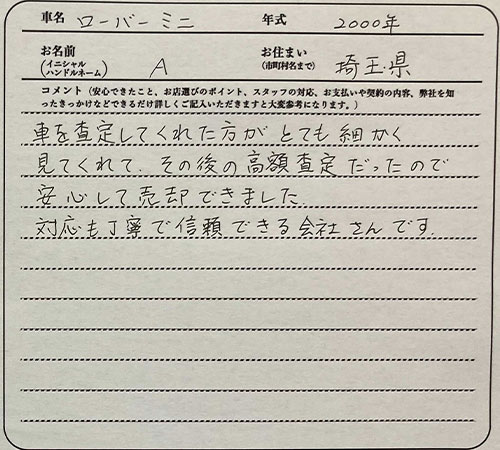 車名 ローバーミニ 年式 2000年
お名前 お住まい
(イニシャル ハンドルネーム) A (市町村名まで) 埼玉県
コメント(安心できたこと、お店選びのポイント、スタッフの対応、お支払いや契約の内容、弊社を知
ったきっかけなどできるだけ詳しくご記入いただきますと大変参考になります。)
車を査定してくれた方がとても細かく
見てくれて、その後の高額査定だったので
安心して売却できました.
対応も丁寧で信頼できる会社さんです.